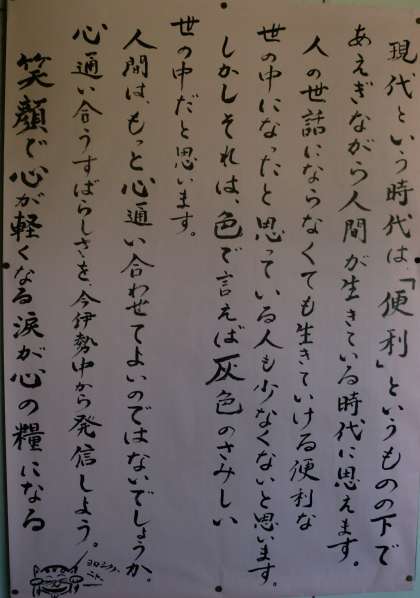 現代という時代は「便利」というものの下で
あえぎながら人間が生きている時代に思えます。
人の世話にならなくても生きていける便利な
世の中になったと思っている人も少なくないと思います。
しかしそれは、色で言えば灰色のさみしい
世の中だと思います。
人間は、もっと心通い合わせてよいのではないでしょうか。
心通い合うすばらしさを、今伊勢中から発信しよう。
笑顔で心が軽くなる涙が心の糧になる
ヨロシク、